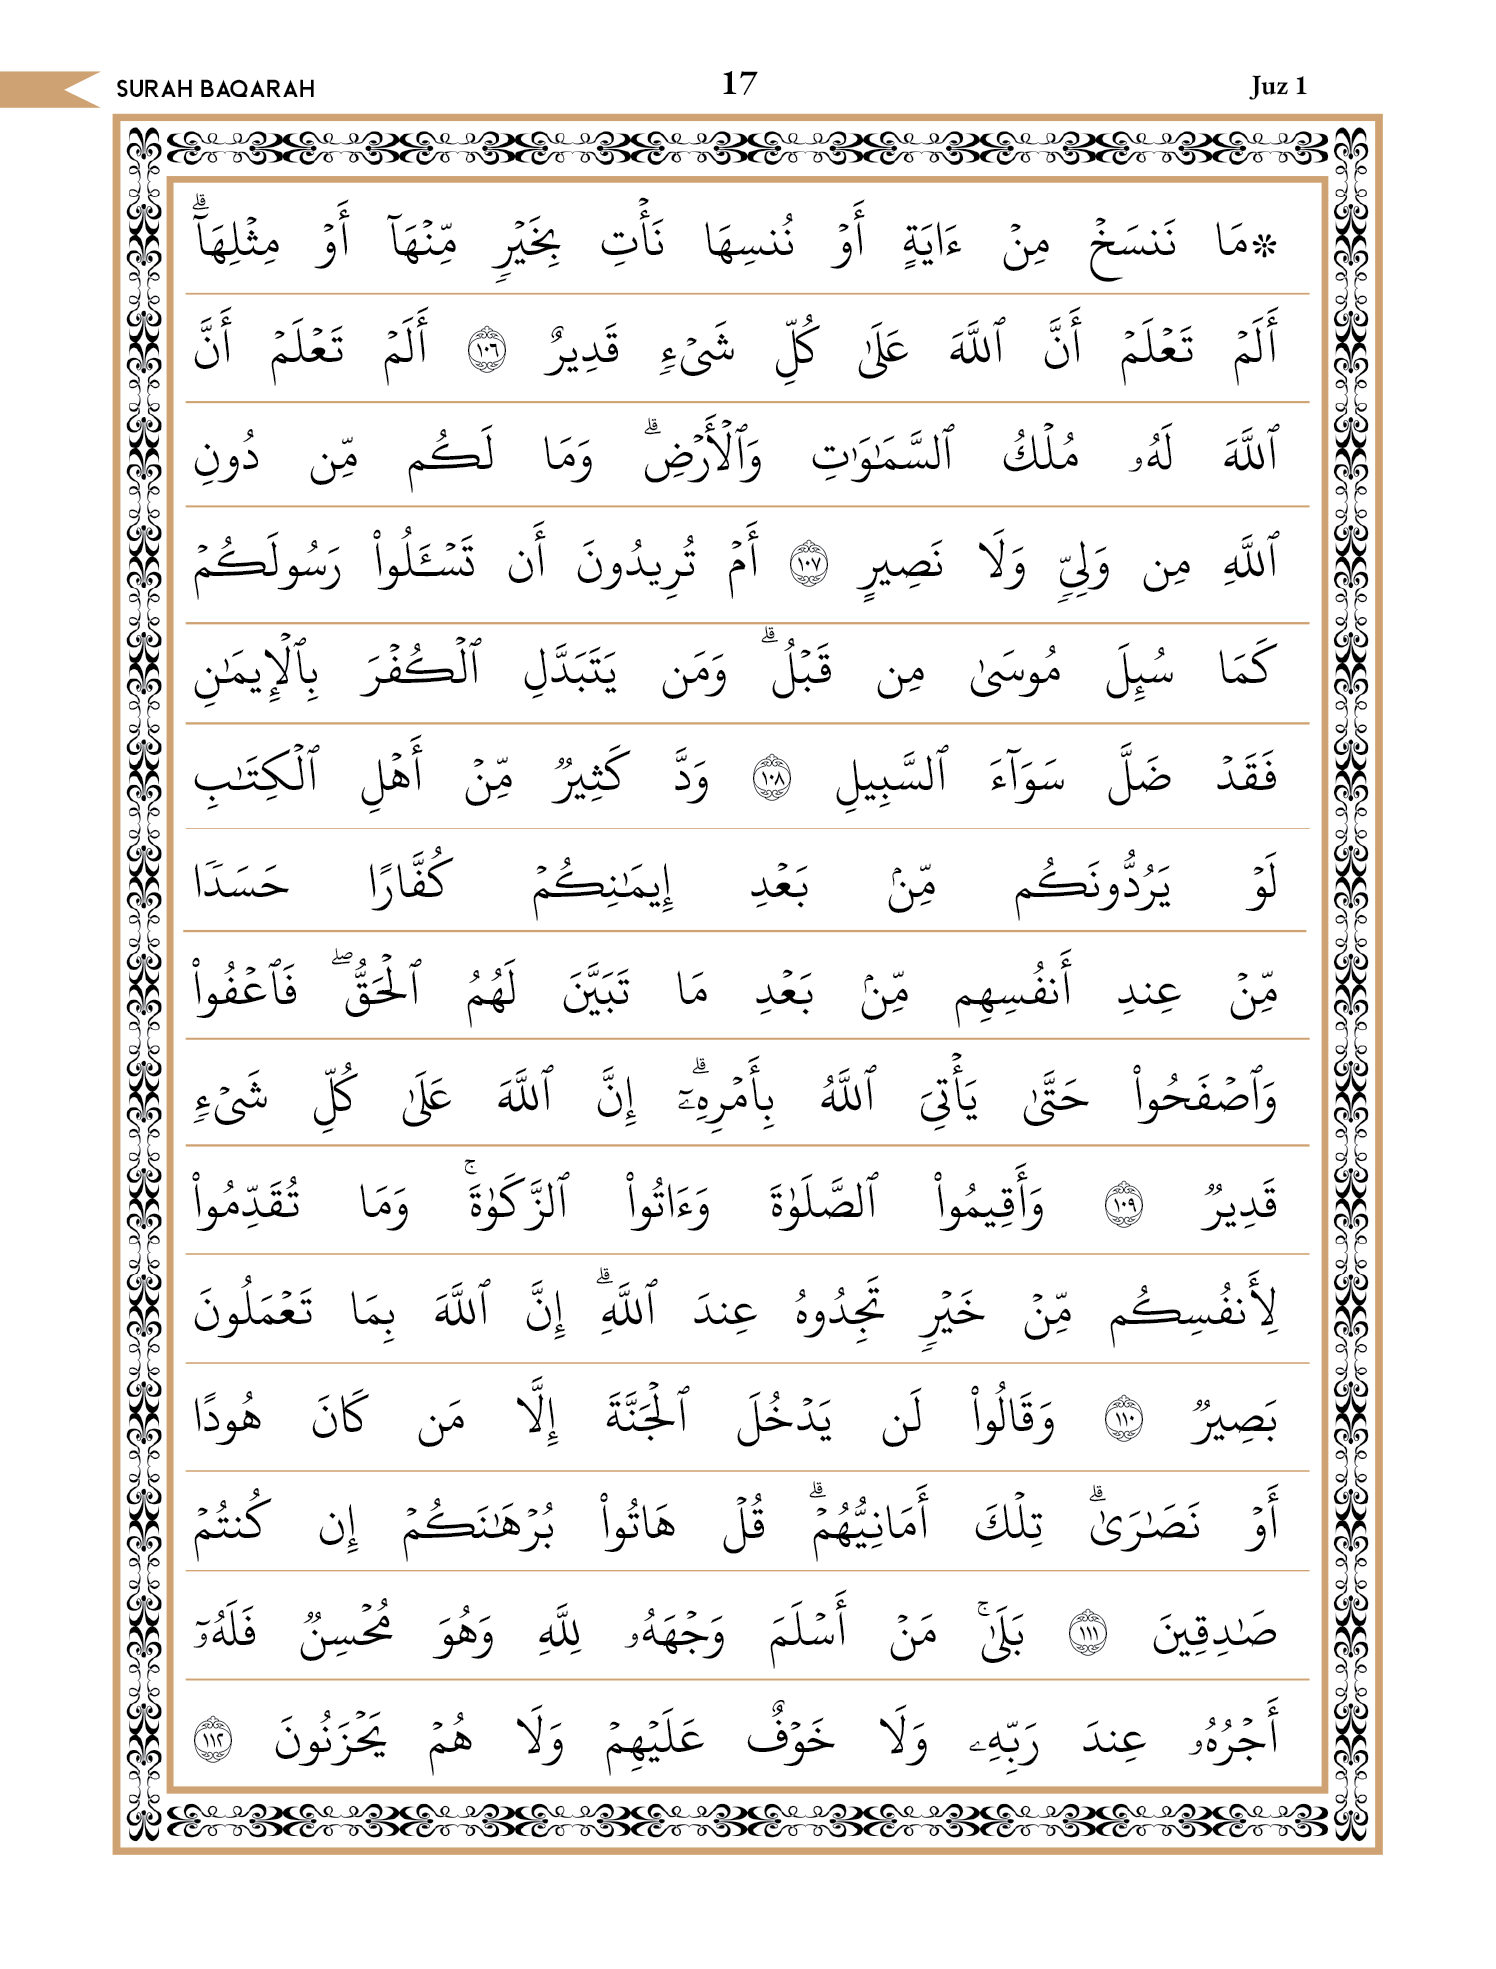 SURAH BAQARAH 17 Juz 1
۞مَا نَنسَخۡ مِنۡ ءَايَةٍ أَوۡ نُنسِهَا نَأۡتِ بِخَيۡرٖ مِّنۡهَآ أَوۡ مِثۡلِهَآۗ
أَلَمۡ تَعۡلَمۡ أَنَّ ٱللَّهَ عَلَىٰ كُلِّ شَيۡءٖ قَدِيرٌ ١٠٦ أَلَمۡ تَعۡلَمۡ أَنَّ
ٱللَّهَ لَهُۥ مُلۡكُ ٱلسَّمَٰوَٰتِ وَٱلۡأَرۡضِۗ وَمَا لَكُم مِّن دُونِ
ٱللَّهِ مِن وَلِيّٖ وَلَا نَصِيرٍ ١٠٧ أَمۡ تُرِيدُونَ أَن تَسۡـَٔلُواْ رَسُولَكُمۡ
كَمَا سُئِلَ مُوسَىٰ مِن قَبۡلُۗ وَمَن يَتَبَدَّلِ ٱلۡكُفۡرَ بِٱلۡإِيمَٰنِ
فَقَدۡ ضَلَّ سَوَآءَ ٱلسَّبِيلِ ١٠٨ وَدَّ كَثِيرٞ مِّنۡ أَهۡلِ ٱلۡكِتَٰبِ
لَوۡ يَرُدُّونَكُم مِّنۢ بَعۡدِ إِيمَٰنِكُمۡ كُفَّارًا حَسَدٗا
مِّنۡ عِندِ أَنفُسِهِم مِّنۢ بَعۡدِ مَا تَبَيَّنَ لَهُمُ ٱلۡحَقُّۖ فَٱعۡفُواْ
وَٱصۡفَحُواْ حَتَّىٰ يَأۡتِيَ ٱللَّهُ بِأَمۡرِهِۦٓۗ إِنَّ ٱللَّهَ عَلَىٰ كُلِّ شَيۡءٖ
قَدِيرٞ ١٠٩ وَأَقِيمُواْ ٱلصَّلَوٰةَ وَءَاتُواْ ٱلزَّكَوٰةَۚ وَمَا تُقَدِّمُواْ
لِأَنفُسِكُم مِّنۡ خَيۡرٖ تَجِدُوهُ عِندَ ٱللَّهِۗ إِنَّ ٱللَّهَ بِمَا تَعۡمَلُونَ
بَصِيرٞ ١١٠ وَقَالُواْ لَن يَدۡخُلَ ٱلۡجَنَّةَ إِلَّا مَن كَانَ هُودًا
أَوۡ نَصَٰرَىٰۗ تِلۡكَ أَمَانِيُّهُمۡۗ قُلۡ هَاتُواْ بُرۡهَٰنَكُمۡ إِن كُنتُمۡ
صَٰدِقِينَ ١١١ بَلَىٰۚ مَنۡ أَسۡلَمَ وَجۡهَهُۥ لِلَّهِ وَهُوَ مُحۡسِنٞ فَلَهُۥٓ
أَجۡرُهُۥ عِندَ رَبِّهِۦ وَلَا خَوۡفٌ عَلَيۡهِمۡ وَلَا هُمۡ يَحۡزَنُونَ ١١٢